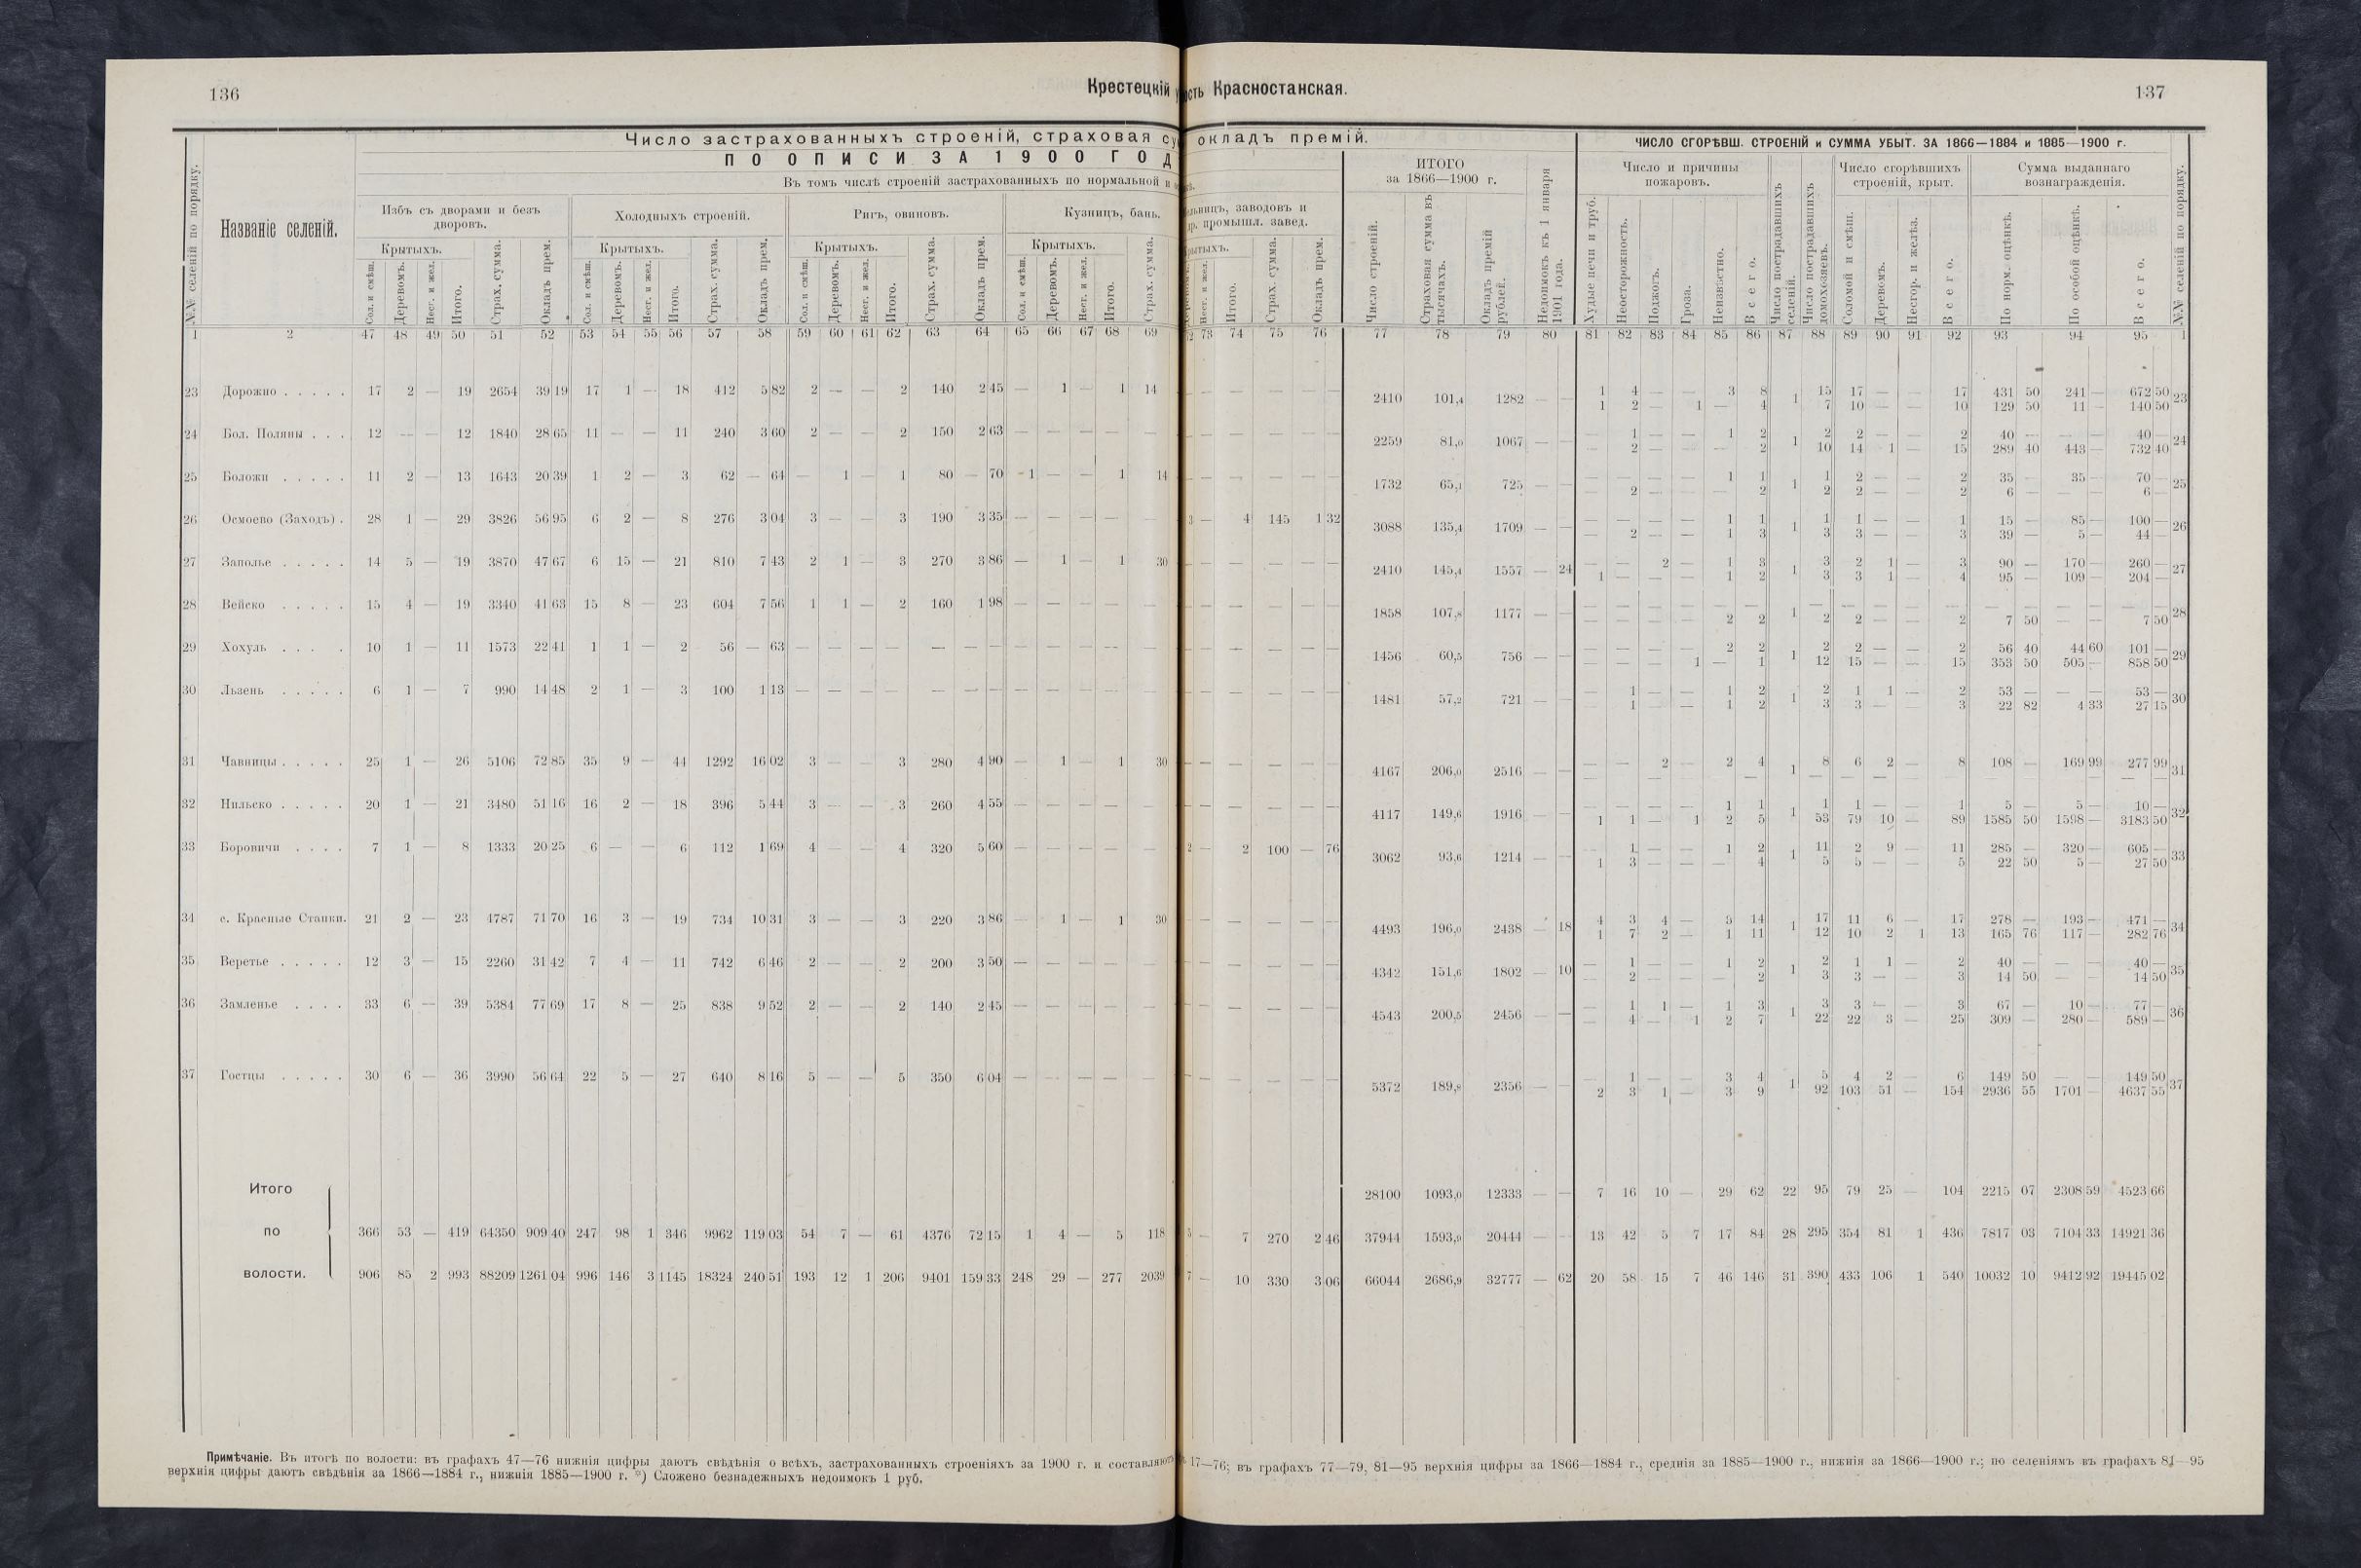 136
Крестецкій
сть Красностанская.
137
Число застрахованныхъ строеній, страховая су окладъ премій.
ЧИСЛО СГОРѢВШ. СТРОЕНІЙ и СУММА УБЫТ. ЗА 1866—1884 и 1885—1900 г.
ПО ОПИСИ ЗА 1900 ГОД
ИТОГО за 1866—1900 г.
Число и причины пожаровъ.
Число сгорѣвшихъ строеній, крыт.
Сумма выданнаго вознагражденія.
Въ томъ числѣ строеній застрахованныхъ по нормальной и
№№ селеній по порядку.
Названіе селеній.
Избъ съ дворами и безъ дворовъ.
Холодныхъ строеній.
Ригъ, овиновъ.
Кузницъ, бань.
ельницъ, заводовъ и др. промышл. завед.
Крытыхъ. Крытыхъ. Крытыхъ. Крытыхъ. рытыхъ.
Сол. и смѣш. Деревомъ. Несг. и жел. Итого. Страх. сумма. Окладъ прем. Сол. и смѣш. Деревомъ. Несг. и жел. Итого. Страх. сумма. Окладъ прем. Сол. и смѣш. Деревомъ. Несг. и жел. Итого. Страх. сумма. Окладъ прем. Сол. и смѣш. Деревомъ. Несг. и жел. Итого. Страх. сумма. Несг. и жел. Итого. Страх. сумма. Окладъ прем. Число строеній. Страховая сумма въ тысячахъ. Окладъ премій рублей. Недоимокъ къ 1 января 1901 года. Худые печи и труб. Неосторожность. Поджогъ. Гроза. Неизвѣстно. Всего. Число пострадавшихъ селеній. Число пострадавшихъ домохозяевъ. Соломой и смѣш. Деревомъ. Несгор. и желѣз. Всего. По норм. оцѣнкѣ. По особой оцѣнкѣ. Всего. №№ селеній по порядку.
1 2 47 48 49 50 51 52 53 54 55 56 57 58 59 60 61 62 63 64 65 66 67 68 69 73 74 75 76 77 78 79 80 81 82 83 84 85 86 87 88 89 90 91 92 93 94 95 1
23 Дорожно . . . . . 17 2 — 19 2654 39 19 17 1 — 18 412 5 82 2 — — 2 140 2 45 — 1 — 1 14 — — — — — 2410 101,4 1282 — — 1 4 — — 3 8 1 15 17 — — 17 431 50 241 — 672 50 23
1 2 — 1 — 4 7 10 — — 10 129 50 11 — 140 50
24 Бол. Поляны . . . 12 — — 12 1840 28 65 11 — — 11 240 3 60 2 — — 2 150 2 63 — — — — — — — — — — 2259 81,0 1067 — — — 1 — — 1 2 1 2 2 — — 2 40 — — — 40 — 24
— 2 — — — 2 10 14 1 — 15 289 40 443 — 732 40
25 Боложи . . . . . 11 2 — 13 1643 20 39 1 2 — 3 62 — 64 — 1 — 1 80 — 70 1 — — 1 14 — — — — — 1732 65,1 725 — — — — — — 1 1 1 1 2 — — 2 35 — 35 — 70 — 25
— 2 — — — 2 2 2 — — 2 6 — — — 6 —
26 Осмоево (Заходъ) . 28 1 — 29 3826 56 95 6 2 — 8 276 3 04 3 — — 3 190 3 35 — — — — — 3 — 4 145 1 32 3088 135,4 1709 — — — — — — 1 1 1 1 1 — — 1 15 — 85 — 100 — 26
— 2 — — 1 3 3 3 — — 3 39 — 5 — 44 —
27 Заполье . . . . . 14 5 — 19 3870 47 67 6 15 — 21 810 7 43 2 1 — 3 270 3 86 — 1 — 1 30 — — — — — 2410 145,4 1557 — 24 — — 2 — 1 3 1 3 2 1 — 3 90 — 170 — 260 — 27
1 — — — 1 2 3 3 1 — 4 95 — 109 — 204 —
28 Вейско . . . . . 15 4 — 19 3340 41 63 15 8 — 23 604 7 56 1 1 — 2 160 1 98 — — — — — — — — — — 1858 107,8 1177 — — — — — — — — 1 — — — — — — — — — — — 28
— — — — 2 2 2 2 — — 2 7 50 — — 7 50
29 Хохуль . . . . 10 1 — 11 1573 22 41 1 1 — 2 56 — 63 — — — — — — — — — — — — — — — — 1456 60,5 756 — — — — — — 2 2 1 2 2 — — 2 56 40 44 60 101 — 29
— — — 1 — 1 12 15 — — 15 353 50 505 — 858 50
30 Льзень . . . . . 6 1 — 7 990 14 48 2 1 — 3 100 1 13 — — — — — — — — — — — — — — — — 1481 57,2 721 — — — 1 — — 1 2 1 2 1 1 — 2 53 — — — 53 — 30
— 1 — — 1 2 3 3 — — 3 22 82 4 33 27 15
31 Чавницы . . . . . 25 1 — 26 5106 72 85 35 9 — 44 1292 16 02 3 — — 3 280 4 90 — 1 — 1 30 — — — — — 4167 206,0 2516 — — — — 2 — 2 4 1 8 6 2 — 8 108 — 169 99 277 99 31
— — — — — — — — — — — — — — — — —
32 Нильско . . . . . 20 1 — 21 3480 51 16 16 2 — 18 396 5 44 3 — — 3 260 4 55 — — — — — — — — — — 4117 149,6 1916 — — — — — — 1 1 1 1 1 — — 1 5 — 5 — 10 — 32
1 1 — 1 2 5 53 79 10 — 89 1585 50 1598 — 3183 50
33 Боровичи . . . . 7 1 — 8 1333 20 25 6 — — 6 112 1 69 4 — — 4 320 5 60 — — — — — 2 — 2 100 — 76 3062 93,6 1214 — — — 1 — — 1 2 1 11 2 9 — 11 285 — 320 — 605 — 33
1 3 — — — 4 5 5 — — 5 22 50 5 — 27 50
34 с. Красные Станки. 21 2 — 23 4787 71 70 16 3 — 19 734 10 31 3 — — 3 220 3 86 — 1 — 1 30 — — — — — 4493 196,0 2438 — 18 4 3 4 — 3 14 1 17 11 6 — 17 278 — 193 — 471 — 34
1 7 2 — 1 11 12 10 2 1 13 165 76 117 — 282 76
35 Веретье . . . . . 12 3 — 15 2260 31 42 7 4 — 11 742 6 46 2 — — 2 200 3 50 — — — — — — — — — — 4342 151,6 1802 — 10 — 1 — — 1 2 1 2 1 1 — 2 40 — — — 40 — 35
— 2 — — — 2 3 3 — — 3 14 50 — — 14 50
36 Замленье . . . . 33 6 — 39 5384 77 69 17 8 — 25 838 9 52 2 — — 2 140 2 45 — — — — — — — — — — 4543 200,5 2456 — — — 1 1 — 1 3 1 3 3 — — 3 67 — 10 — 77 — 36
— 4 — 1 2 7 22 22 3 — 25 309 — 280 — 589 —
37 Гостцы . . . . . 30 6 — 36 3990 56 64 22 5 — 27 640 8 16 5 — — 5 350 6 04 — — — — — — — — — — 5372 189,8 2356 — — — 1 — — 3 4 1 5 4 2 — 6 149 50 — — 149 50 37
2 3 1 — 3 9 92 103 51 — 154 2936 55 1701 — 4637 55
Итого 28100 1093,0 12333 — — 7 16 10 — 29 62 22 95 79 25 — 104 2215 07 2308 59 4523 66
по 366 53 — 419 64350 909 40 247 98 1 346 9962 119 03 54 7 — 61 4376 72 15 1 4 — 5 118 5 — 7 270 2 46 37944 1593,9 20444 — — 13 42 5 7 17 84 28 295 354 81 1 436 7817 03 7104 33 14921 36
волости. 906 85 2 993 88209 1261 04 996 146 3 1145 18324 240 51 193 12 1 206 9401 159 33 248 29 — 277 2039 7 — 10 330 3 06 66044 2686,9 32777 — 62 20 58 15 7 46 146 31 390 433 106 1 540 10032 10 9412 92 19445 02
Примѣчаніе. Въ итогѣ по волости: въ графахъ 47—76 нижнія цифры даютъ свѣдѣнія о всѣхъ, застрахованныхъ строеніяхъ за 1900 г. и составляютъ 17—76; въ графахъ 77—79, 81—95 верхнія цифры за 1866—1884 г., среднія за 1885—1900 г., нижнія за 1866—1900 г.; по селеніямъ въ графахъ 81—95
верхнія цифры даютъ свѣдѣнія за 1866—1884 г., нижнія 1885—1900 г. *) Сложено безнадежныхъ недоимокъ 1 руб.